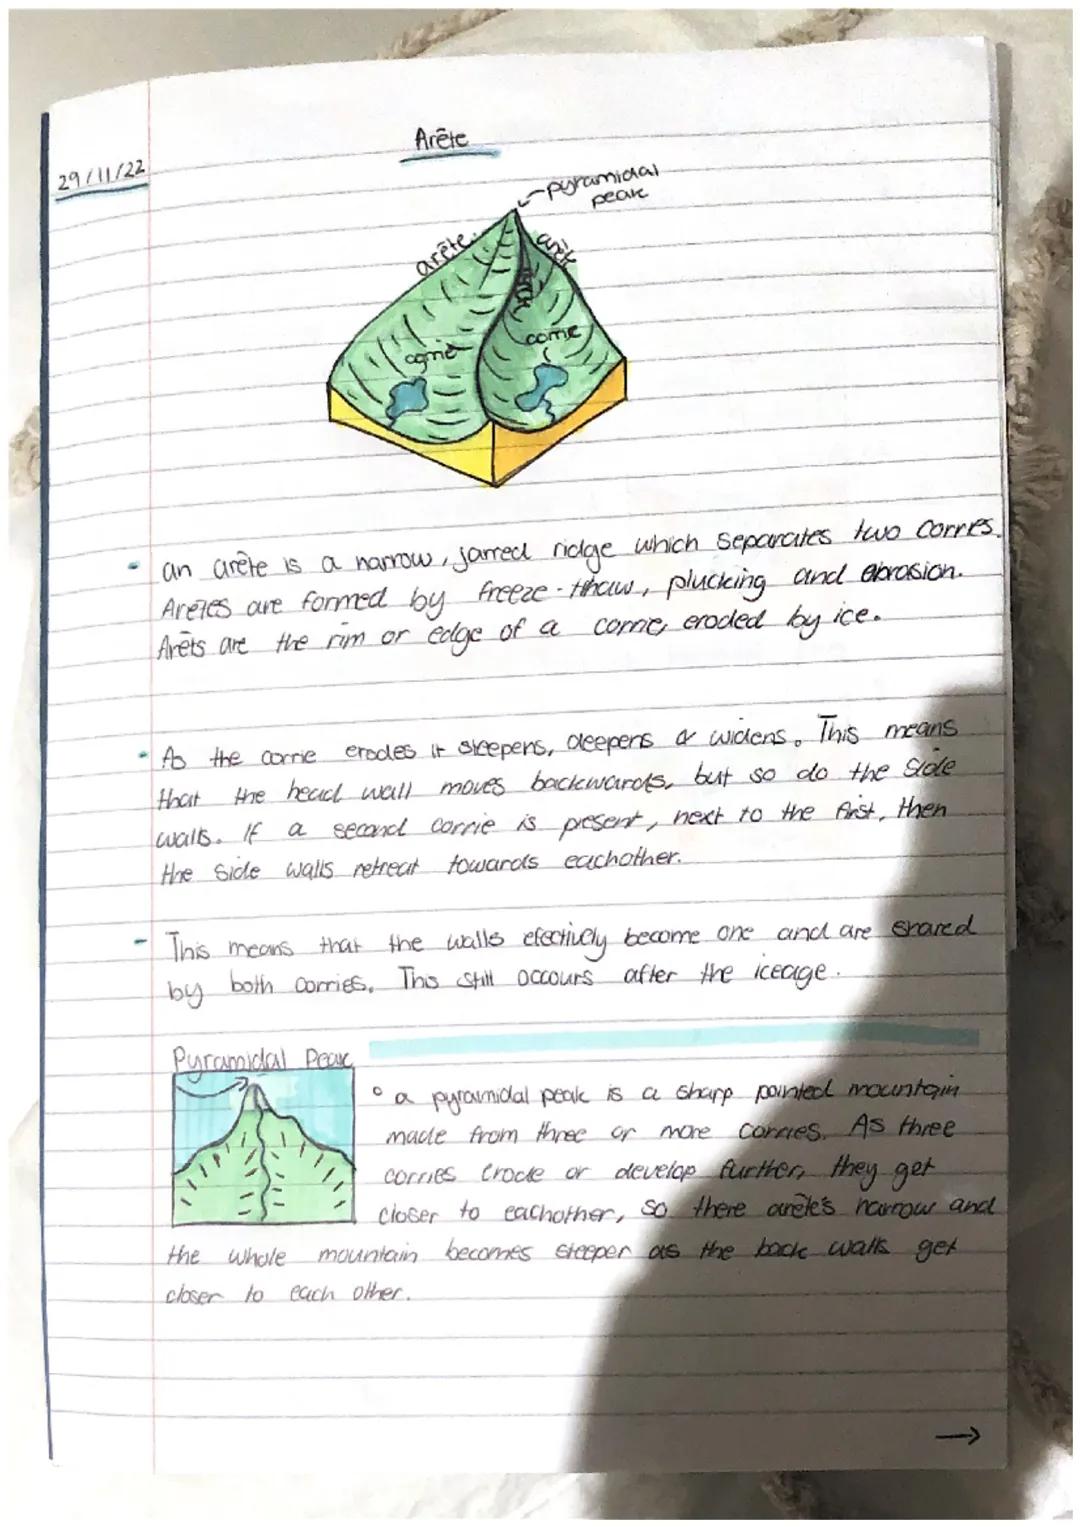 Arête
29/11/22
pyramidal
peak
arête
arête
corrie
corrie
an arête is a narrow, jarred ridge which separates two corries.
Aretes are formed by freeze-thaw, plucking and abrasion.
Arêts are the rim or edge of a corrie eroded by ice.
As the corrie erodes it steepens, deepens & widens. This means
that the head wall moves backwards, but so do the side
walls. If a second corrie is present, next to the first, then
the side walls retreat towards eachother.
This means that the walls efectively become one and are shared
by both corries. This still occours after the iceage.
Pyramidal Peak
a pyramidal peak is a sharp pointed mountain
made from three or more corries. As three
corries erode or develop further, they get
closer to eachother, so there arête's narrow and
the whole mountain becomes steeper as the back walls get
closer to each other.